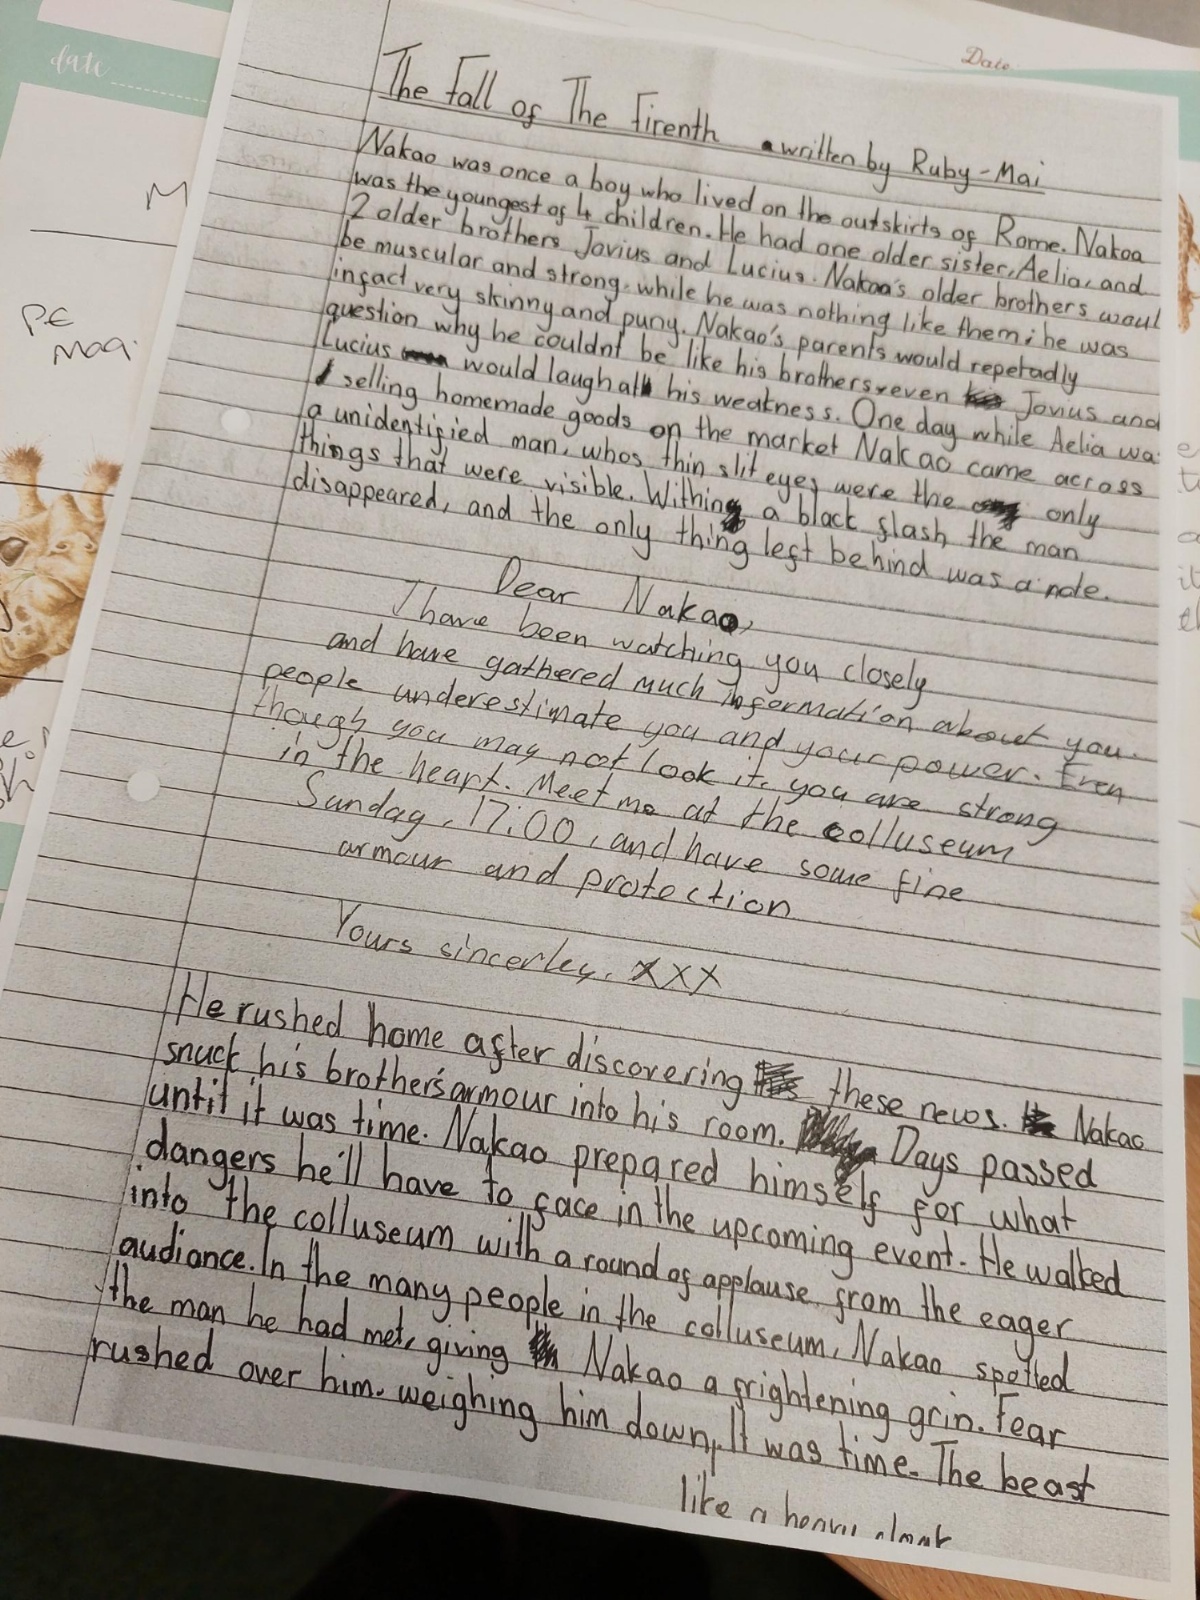 date
Date
The Fall of The Firenth written by Ruby-Mai
Nakao was once a boy who lived on the outskirts of Rome. Nakoa
was the youngest of 4 children. He had one older sister, Aelia, and
2 older brothers Jovius and Lucius. Nakoa's older brothers woul
be muscular and strong, while he was nothing like them; he was
infact very skinny and puny. Nakao's parents would repetadly
question why he couldnt be like his brothers, even Jovius and
Lucius would laugh at his weakness. One day while Aelia wa
selling homemade goods on the market Nakao came across
a unidentified man, whos thin slit eyes were the only
things that were visible. Within a black flash the man
disappeared, and the only thing left behind was a note.
Dear Nakao,
I have been watching you closely
and have gathered much information about you.
people underestimate you and your power. Even
though you may not look it, you are strong
in the heart. Meet me at the colluseum
Sunday, 17:00, and have some fine
armour and protection
Yours sincerley, xxx
He rushed home after discovering these news. Nakao
snuck his brother's armour into his room. Days passed
until it was time. Nakao prepared himself for what
dangers he'll have to face in the upcoming event. He walked
into the colluseum with a round of applause from the eager
audiance. In the many people in the colluseum, Nakao spotted
the man he had met, giving Nakao a frightening grin. Fear
rushed over him, weighing him down, It was time. The beast
like a heavy
M
PE